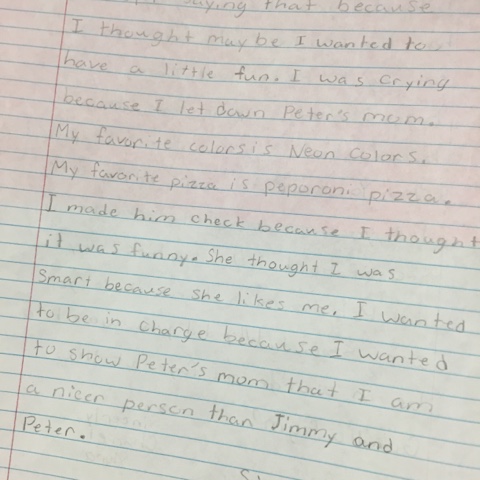 saying that because
I thought maybe I wanted to
have a little fun. I was crying
because I let down Peter's mom.
My favorite colorsis Neon Colors.
My favorite pizza is peporoni pizza.
I made him check because I thought
it was funny. She thought I was
Smart because she likes me. I wanted
to be in charge because I wanted
to show Peter's mom that I am
a nicer person than Jimmy and
Peter.